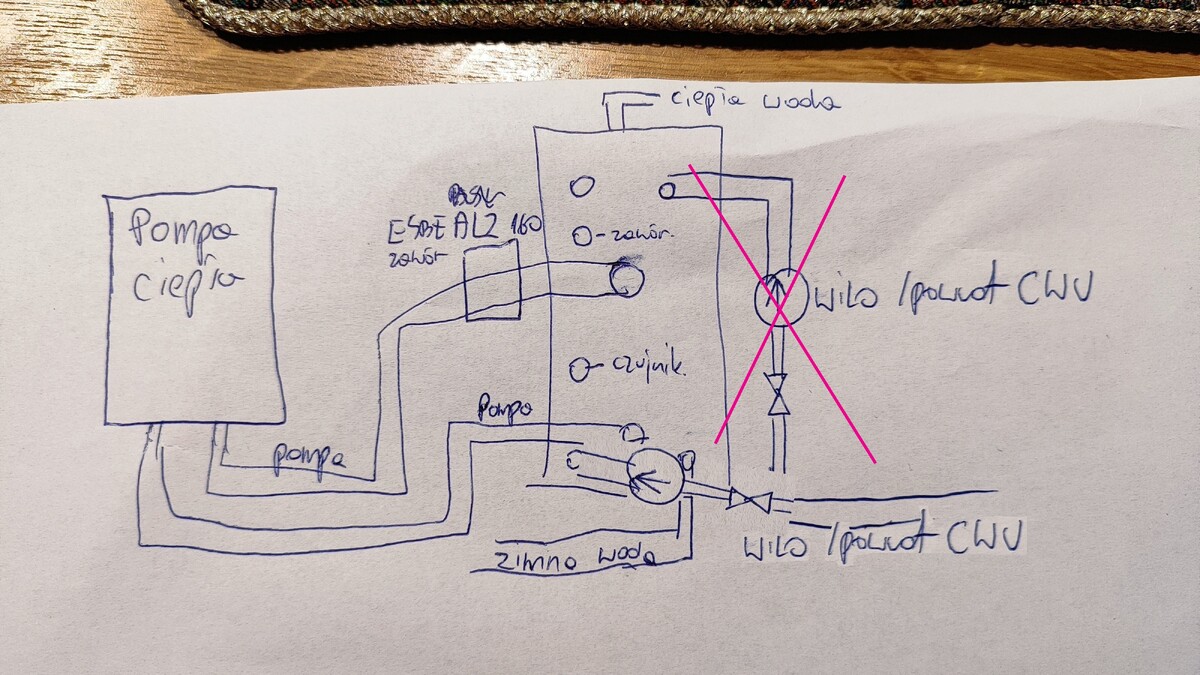 ciepła woda
Pompa
ciepła
ESBE ALZ 160
zawór
zawór.
wilo /powrót CWU
czujnik.
Pompa
pompa
zimna woda
wilo /powrót CWU